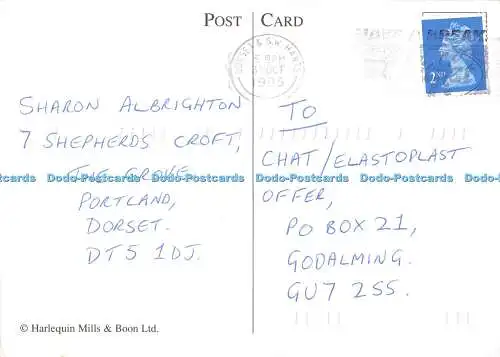 POST CARD
DORSET & S.W. HANTS
5 PM
OCT
2ND
SHARON ALBRIGHTON
7 SHEPHERDS CROFT,
THE GROVE
PORTLAND,
DORSET.
DT5 1DJ.
TO
CHAT/ELASTOPLAST
OFFER,
PO BOX 21,
GODALMING.
GU7 2SS.
Dodo-Postcards Dodo-Postcards Dodo-Postcards Dodo-Postcards Dodo-Postcards
© Harlequin Mills & Boon Ltd.